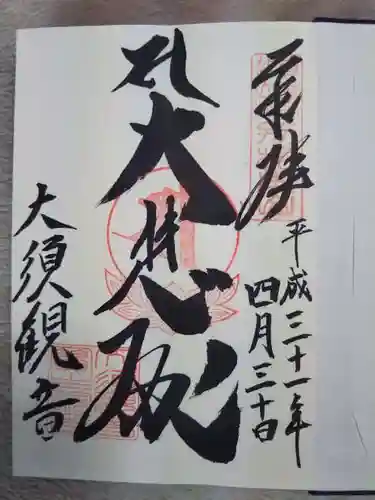 奉拝
平成三十一年
四月三十日
大悲殿
大須観音